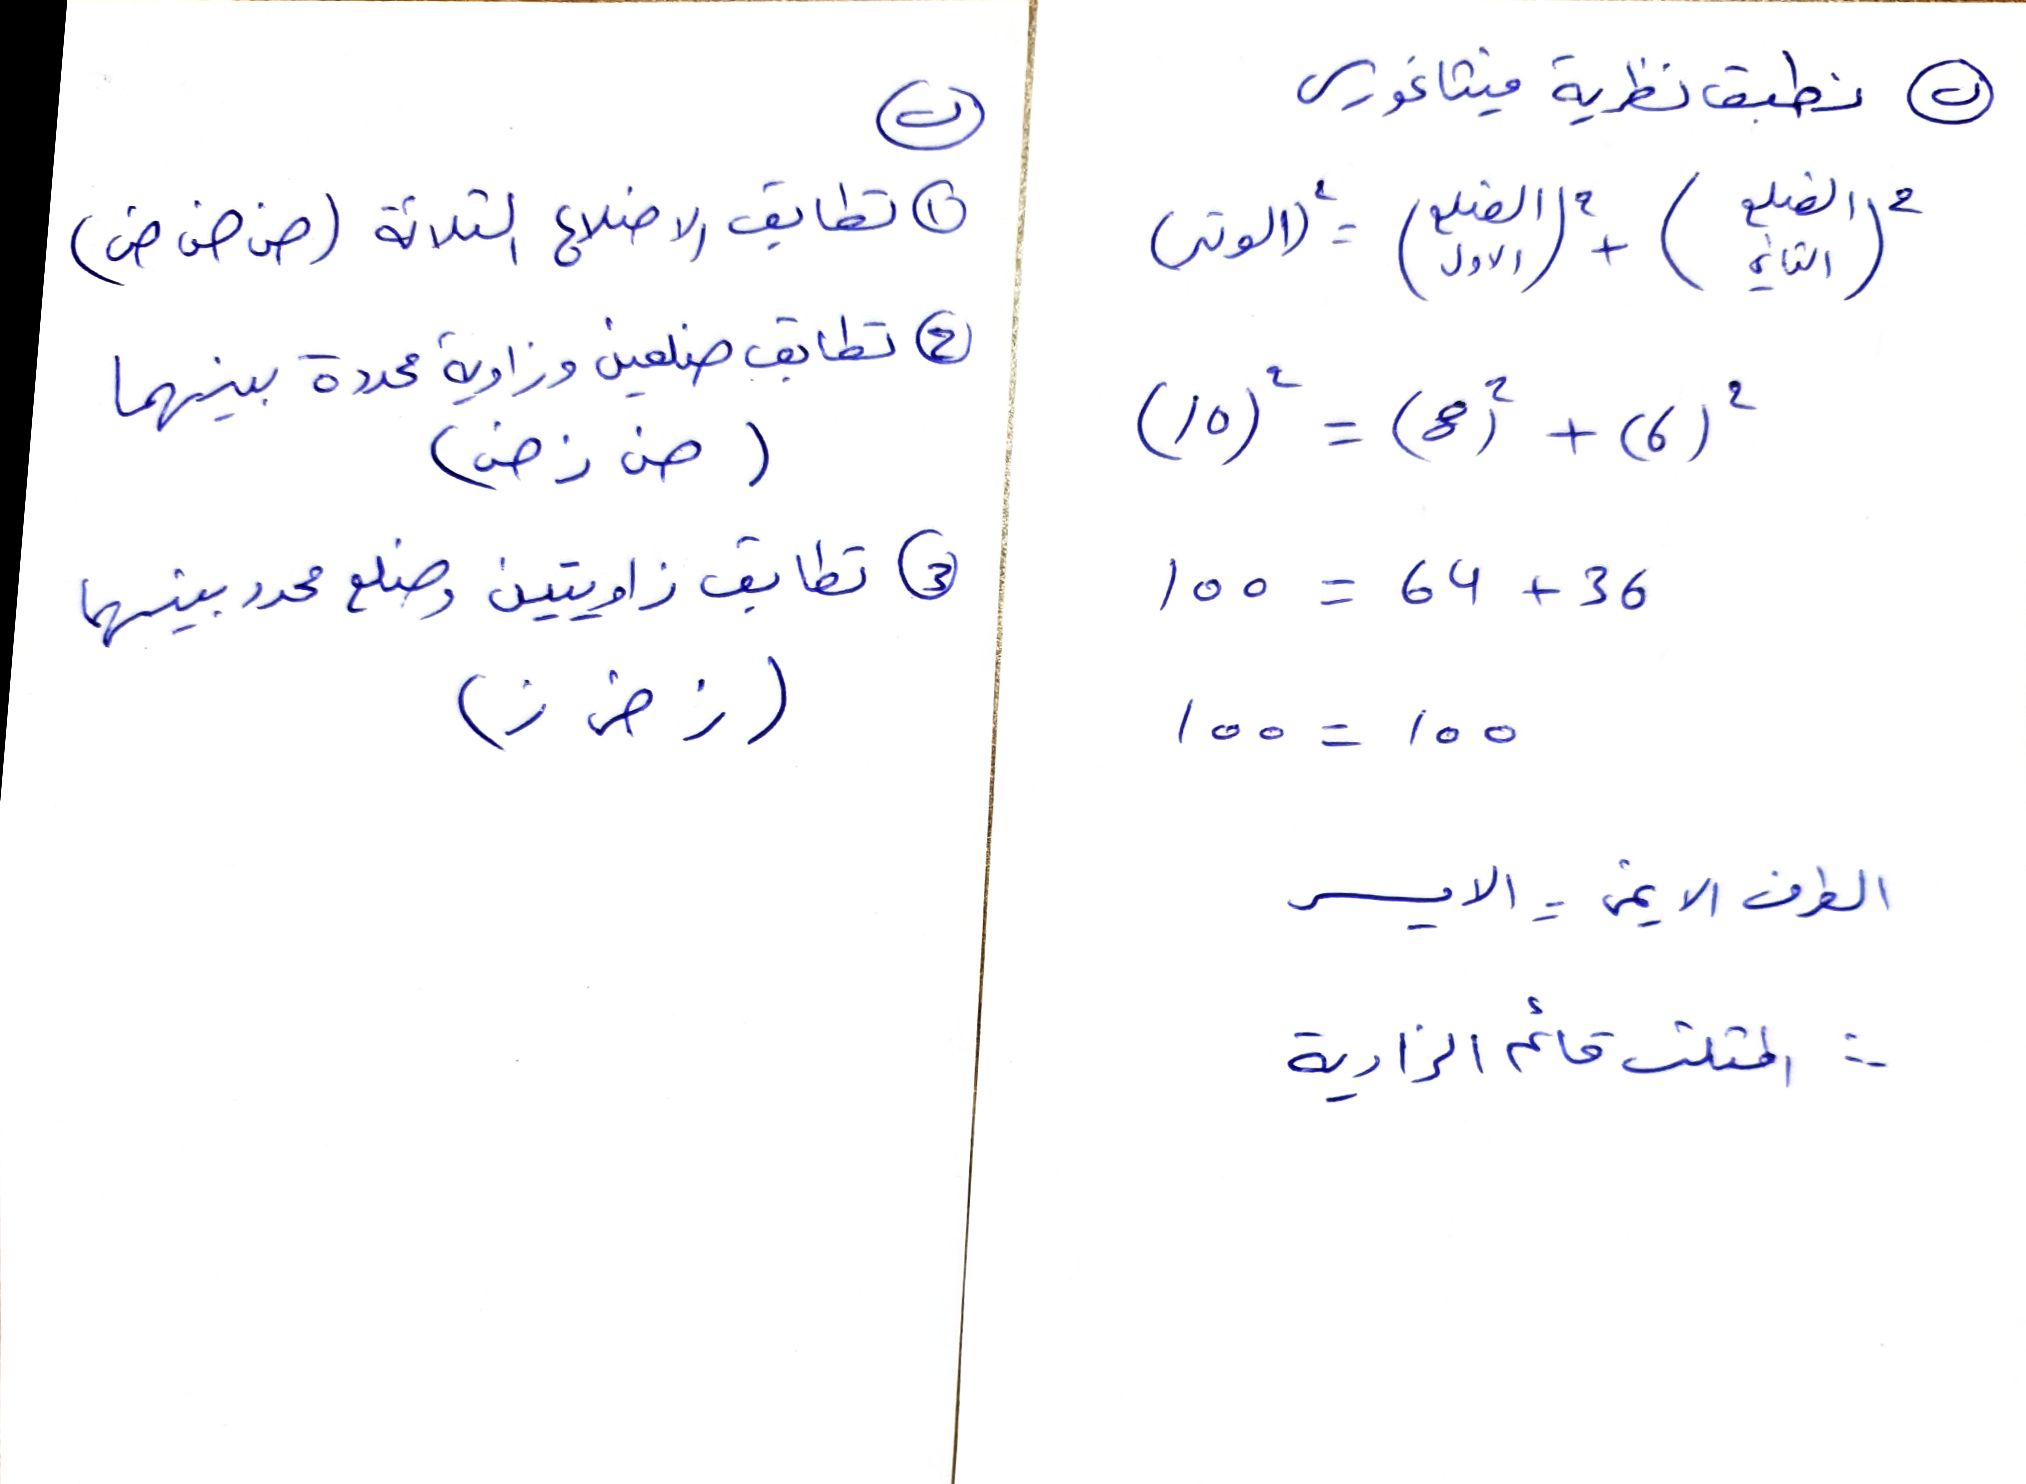 ب نطبق نظرية فيثاغورس
(الوتر)² = (الضلع الاول)² + (الضلع الثاني)²
(10)² = (8)² + (6)²
100 = 64 + 36
100 = 100
الطرف الايمن = الايسر
∴ المثلث قائم الزاوية
ب
① تطابق الاضلاع الثلاثة (ض ض ض)
② تطابق ضلعين وزاوية محددة بينهما
(ض ز ض)
③ تطابق زاويتين وضلع محدد بينهما
(ز ض ز)